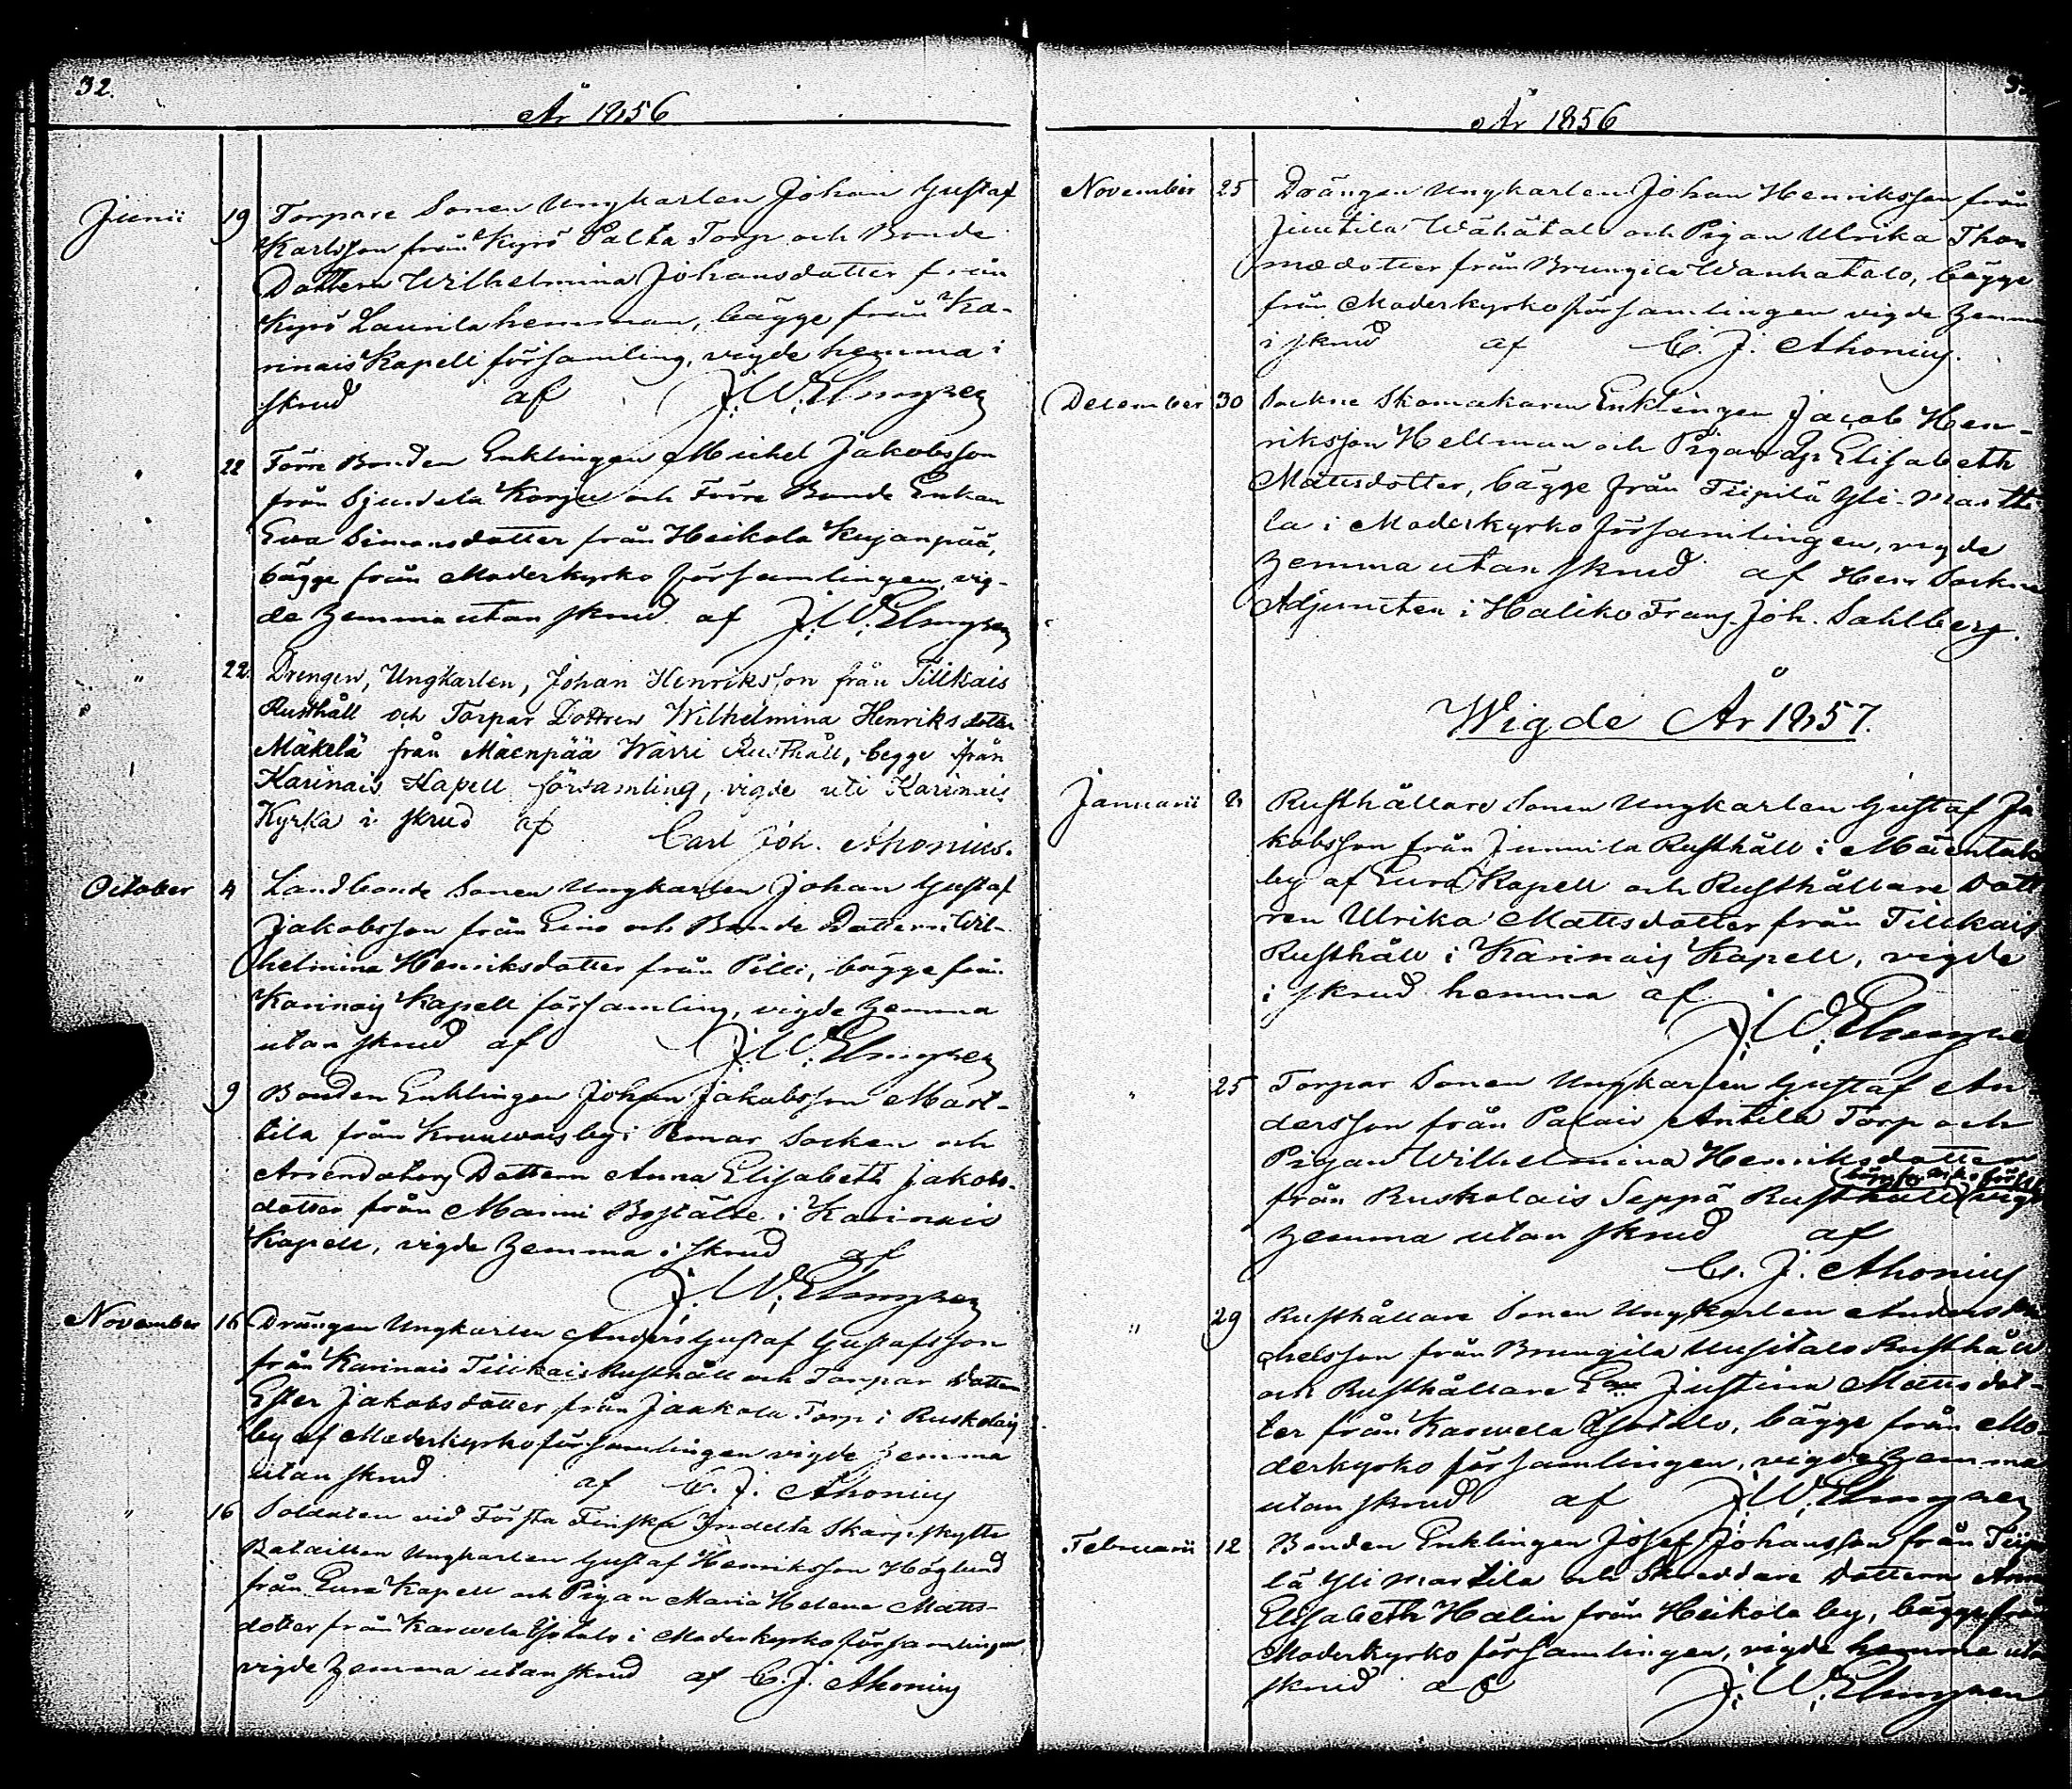 32.
År 1856
Junii 19 Torpare Sonen Ungkarlen Johan Gustaf
Karlsson från Kyrö Palta Torp och Bonde
Dottern Wilhelmina Johansdotter från
Kyrö Laurila hemman, bägge från Ka-
rinais Kapell församling, vigde hemma i
skrud af J. W. Elmgren
" 22 Förre Bonden Enklingen Michel Jakobsson
från Sjundela Korju och Förre Bonde Enkan
Eva Simonsdotter från Heikola Kujanpää,
bägge från Moderkyrko församlingen vig-
de hemma utan skrud af J. W. Elmgren
" 22. Drengen, Ungkarlen, Johan Henriksson från Tillkais
Rusthåll och Torpar Dottren Wilhelmina Henriksdotter
Mäkelä från Mäenpää Wärri Rusthåll, begge från
Karinais Kapell församling, vigde uti Karinais
Kyrka i skrud af Carl Joh. Ahonius.
October 4 Landbonde Sonen Ungkarlen Johan Gustaf
Jakobsson från Eino och Bonde Dottern Wil-
helmina Henriksdotter från Pilli, bägge från
Karinais Kapell församling, vigde hemma
utan skrud af J. W. Elmgren
9 Bonden Enklingen Johan Jakobsson Mart-
tila från by i Pemar Socken och
Arrendators Dottern Anna Elisabeth Jakobs-
dotter från Manni Boställe i Karinais
Kapell, vigde hemma i skrud af
J. W. Elmgren
November 16 Drängen Ungkarlen Anders Gustaf Gustafsson
från Karinais Tillkais Rusthåll och Torpar Dottern
Ester Jakobsdotter från Jaakola Torp i Ruskolais
by af Moderkyrkoförsamlingen vigde hemma
utan skrud af C. J. Ahonius
" 16 Soldaten vid Första Finska Indelta Skarpskytte
Bataillon Ungkarlen Gustaf Henriksson Höglund
från Eura Kapell och Pigan Maria Helena Matts-
dotter från Karwela Ylötalo i Moderkyrko församlingen,
vigde hemma utan skrud af C. J. Ahonius
År 1856
November 25 Drängen Ungkarlen Johan Henriksson från
Juntila Wähätalo och Pigan Ulrika Tho
mædotter från Brungila Wanhatalo, bägge
från Moderkyrkoförsamlingen vigde hemma
i skrud af C. J. Ahonius.
December 30 Sockne Skomakaren Enklingen Jacob Hen-
riksson Hellman och Pigan Elisabeth
Mattsdotter, bägge från Tiipilä Yli-Martti
la i Moderkyrko församlingen, vigde
hemma utan skrud af Herr Sockne
Adjuncten i Haliko Frans Joh. Sahlberg.
Wigde År 1857.
Januarii 2 Rusthållare Sonen Ungkarlen Gustaf Ja
kobsson från Junnila Rusthåll i Mäentak
by af Eura Kapell och Rusthållare Dott
ren Ulrika Mattsdotter från Tillkais
Rusthåll i Karinais Kapell, vigde
i skrud hemma af
J. W. Elmgren
" 25 Torpar Sonen Ungkarlen Gustaf An
dersson från Palais Antila Torp och
Pigan Wilhelmina Henriksdotter
från Ruskolais Seppä Rusthåll vigde
hemma utan skrud af
C. J. Ahonius
" 29 Rusthållare Sonen Ungkarlen Anders Mi
chelsson från Brungila Uusitalo Rusthåll
och Rusthållare Justina Mattsdot-
ter från Karwela Ylötalo, bägge från Mo
derkyrko församlingen, vigde hemma
utan skrud af J. W. Elmgren
Februarii 12 Bonden Enklingen Josef Johansson från Tiipi
lä Yli Martila och Skreddare Dottern Anna
Elisabeth Halin från Heikola by, bägge från
Moderkyrko församlingen, vigde hemma uta
skrud af J. W. Elmgren